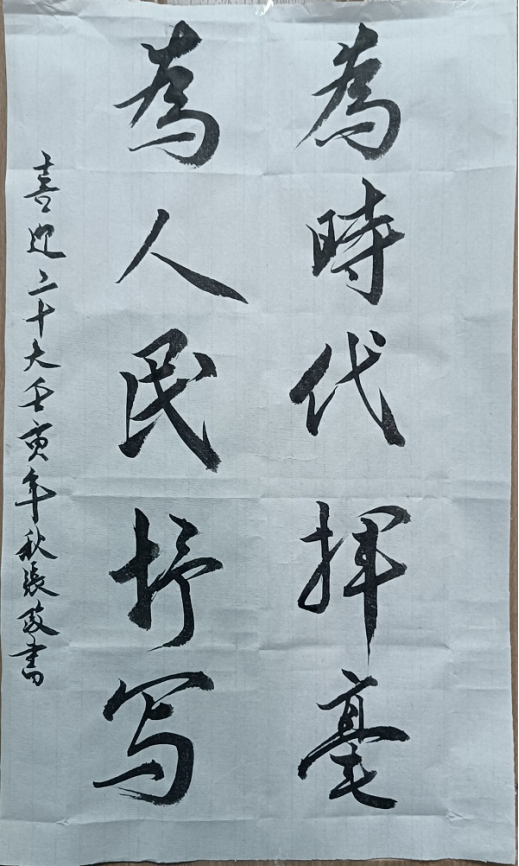 為時代揮毫
為人民抒写
喜迎二十大壬寅年秋張政書